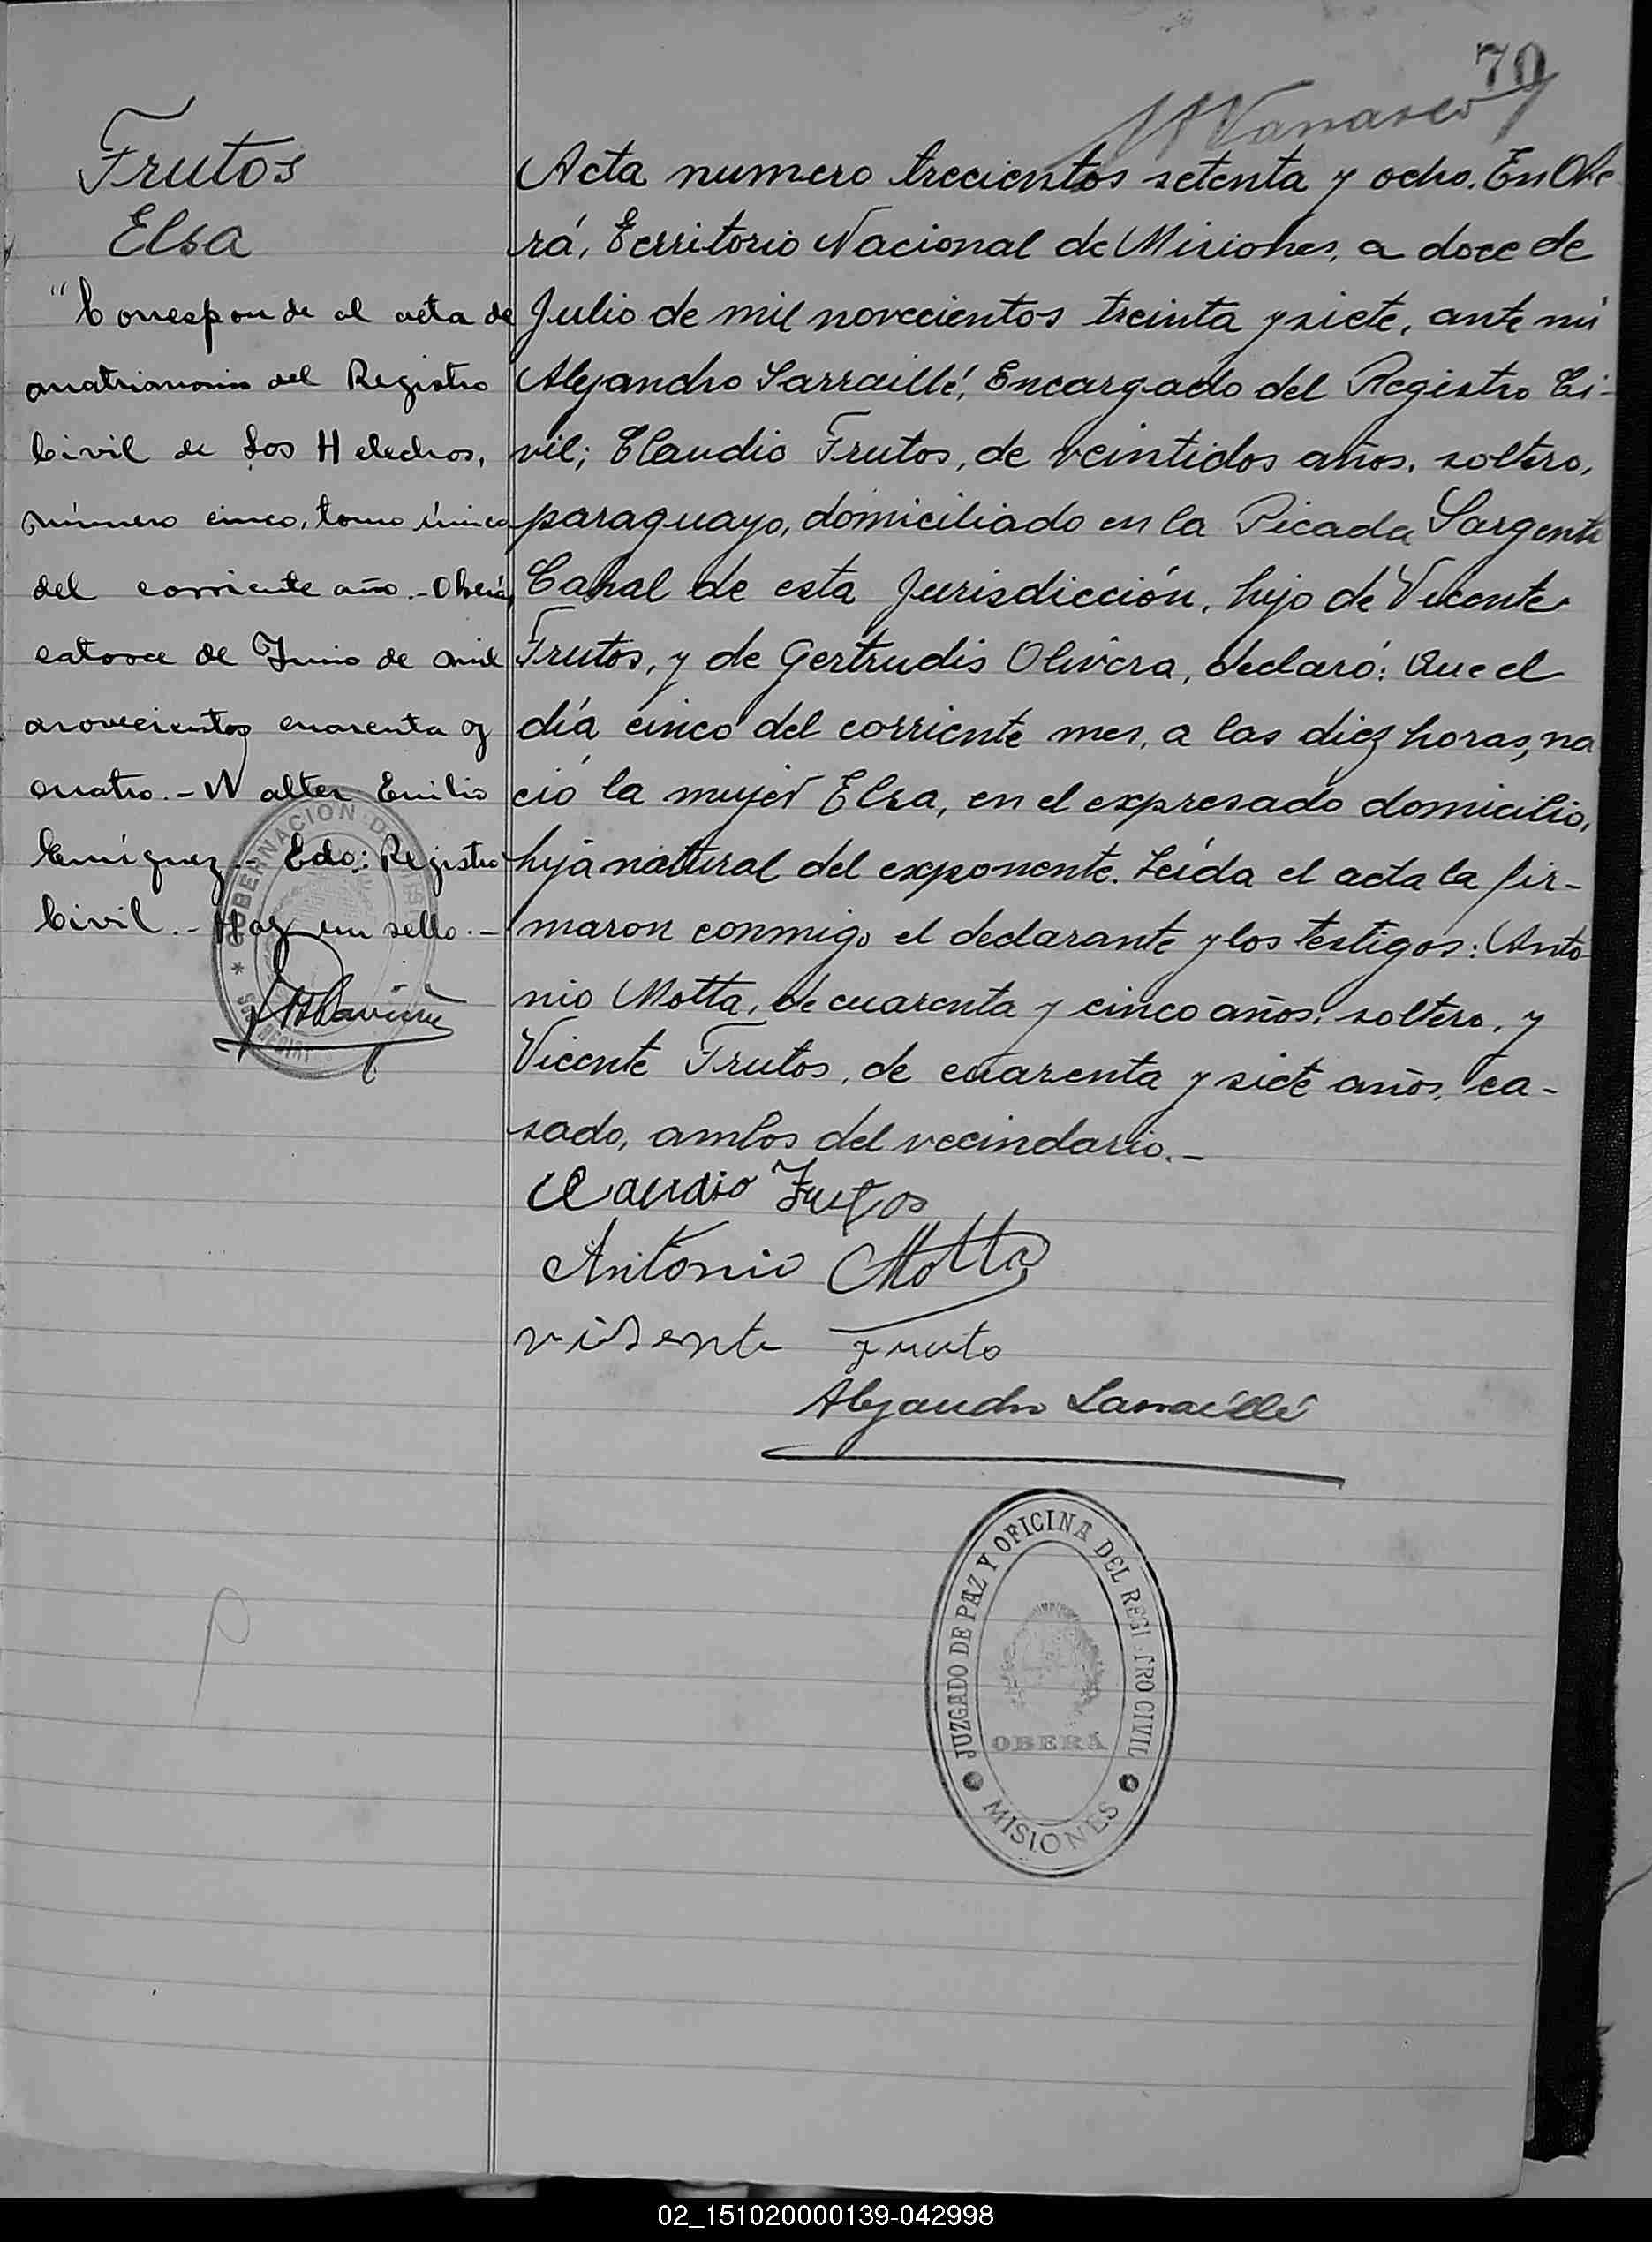 70
Frutos
Elsa
"Corresponde al acta de
matrimonio del Registro
Civil de Los Helechos,
número cinco, tomo único
del corriente año.- Oberá,
catorce de Junio de mil
novecientos cuarenta y
cuatro.- Walter Emilio
Enríquez.- Edo: Registro
Civil.- Hay un sello.-
Acta numero trecientos setenta y ocho. En Obe
rá, Territorio Nacional de Misiones, a doce de
Julio de mil novecientos treinta y siete, ante mi
Alejandro Sarraillé, Encargado del Registro Ci-
vil; Claudio Frutos, de veintidos años, soltero,
paraguayo, domiciliado en la Picada Sargento
Cabral de esta Jurisdicción, hijo de Vicente
Frutos, y de Gertrudis Olivera, declaró: Que el
día cinco del corriente mes, a las diez horas, na
ció la mujer Elsa, en el expresado domicilio,
hija natural del exponente. Leída el acta la fir-
maron conmigo el declarante y los testigos: Anto
nio Motta, de cuarenta y cinco años, soltero, y
Vicente Frutos, de cuarenta y siete años, ca-
sado, ambos del vecindario.-
Claudio Frutos
Antonio Motta
visente Fruto
Alejandro Sarraillé
JUZGADO DE PAZ Y OFICINA DEL REGI TRO CIVIL
OBERÁ
MISIONES
02_151020000139-042998